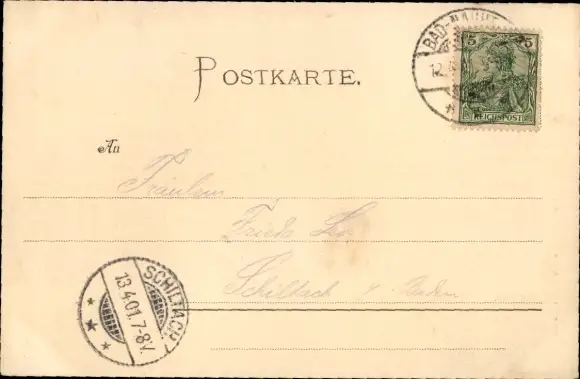 BAD-NAUH
12.
5 5
REICHSPOST
POSTKARTE.
An
Fräulein
Frieda
Schiltach
Baden
SCHILTACH
13.4.01.7-8V.